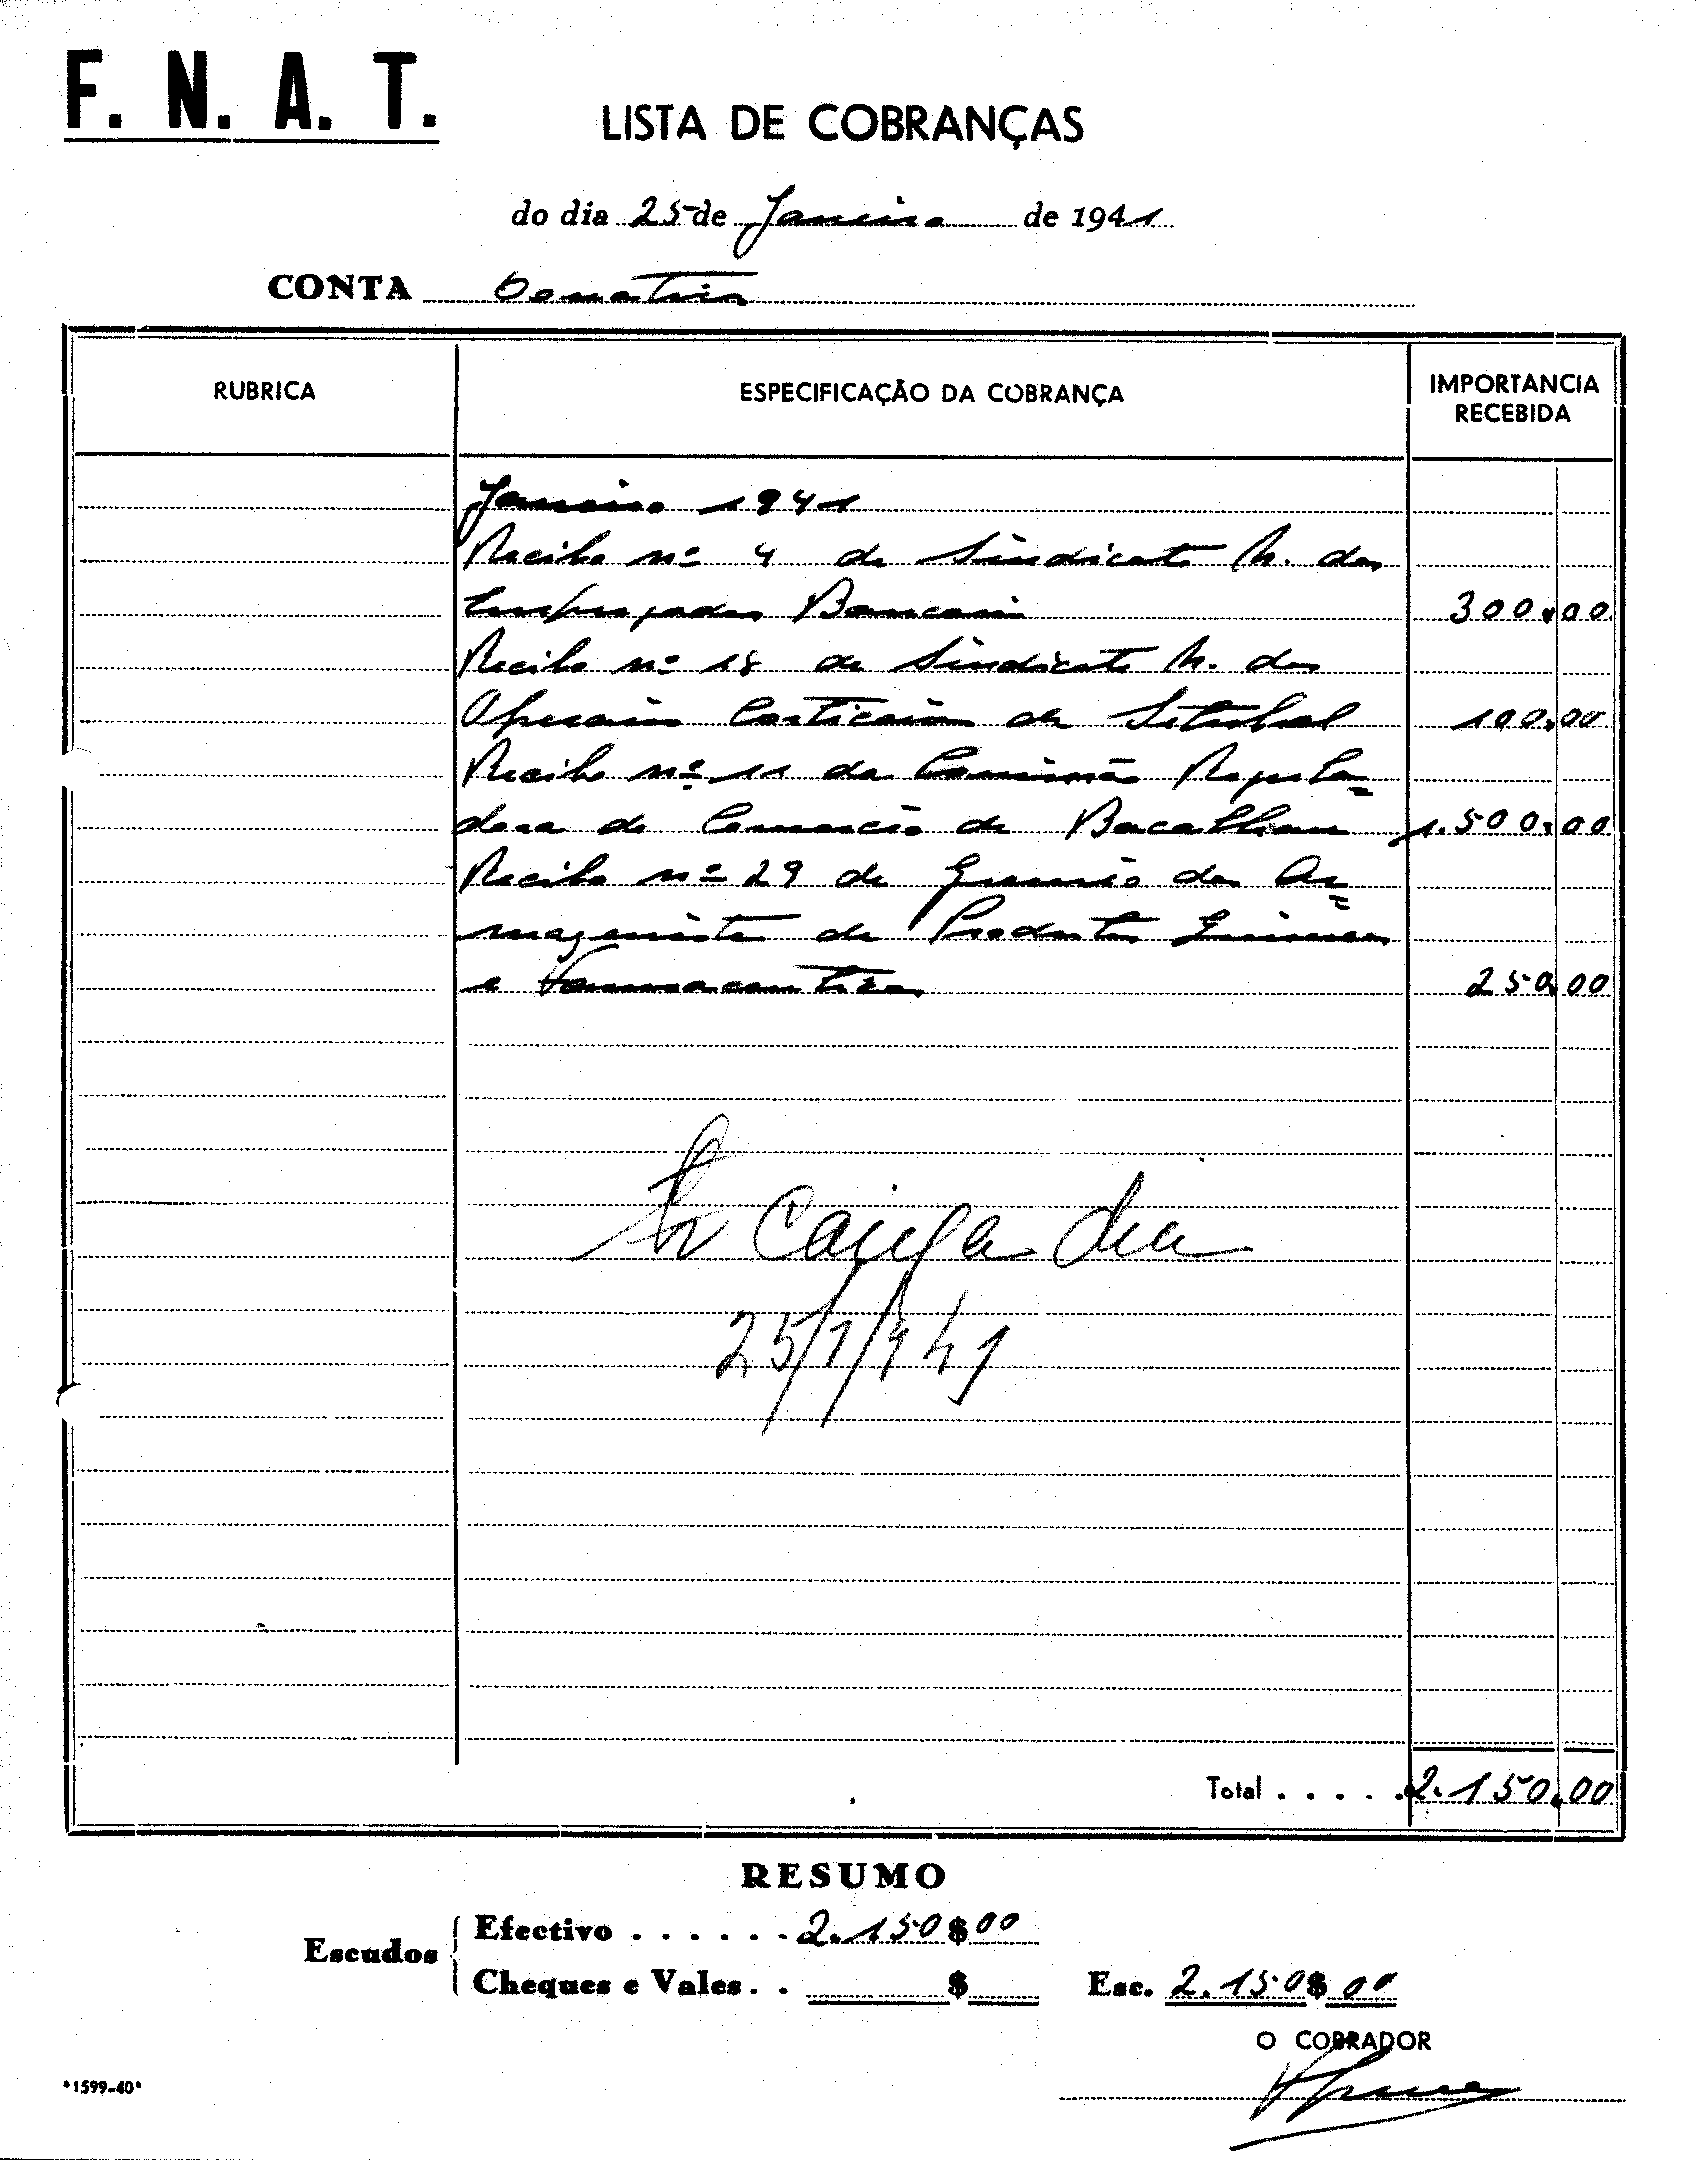 F. N. A. T.
LISTA DE COBRANÇAS
do dia 25 de Janeiro de 1941
CONTA Donativos
RUBRICA ESPECIFICAÇÃO DA COBRANÇA IMPORTANCIA RECEBIDA
Janeiro 1941
Recibo nº 4 do Sindicato N. dos
Empregados Bancarios 300.00
Recibo nº 18 do Sindicato N. dos
Operarios Corticeiros de Setubal 100.00
Recibo nº 11 da Comissão Regula-
dora do Comercio de Bacalhau 1.500.00
Recibo nº 29 do Gremio dos Ar-
mazenistas de Productos Quimicos
e Farmaceuticos 250.00
Caixa dia
25/1/941
Total . . . . . 2.150.00
RESUMO
Escudos
Efectivo . . . . . . 2.150$00
Cheques e Vales . . $
Esc. 2.150$00
O COBRADOR
*1599-40*